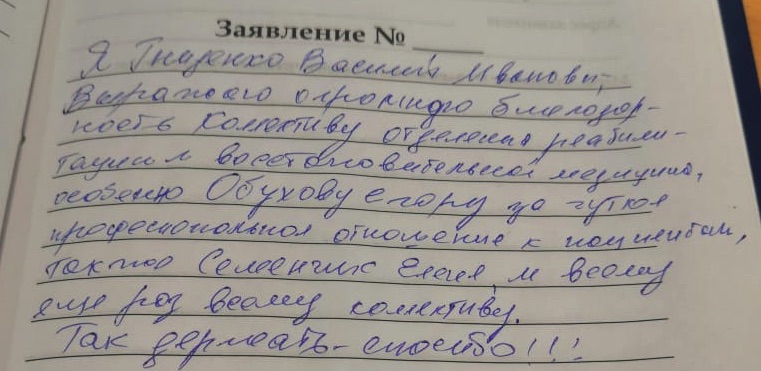 Заявление № ____
Я Гнаденко Василий Иванович,
Выражаю огромную благодар-
ность Коллективу отделения реабили-
тации и восстановительной медицины,
особенно Обухову Егору за чуткое
професиональное отношение к пациентам,
также Семенчик Елене, и всему
еще раз всему коллективу.
Так держать - спасибо!!!